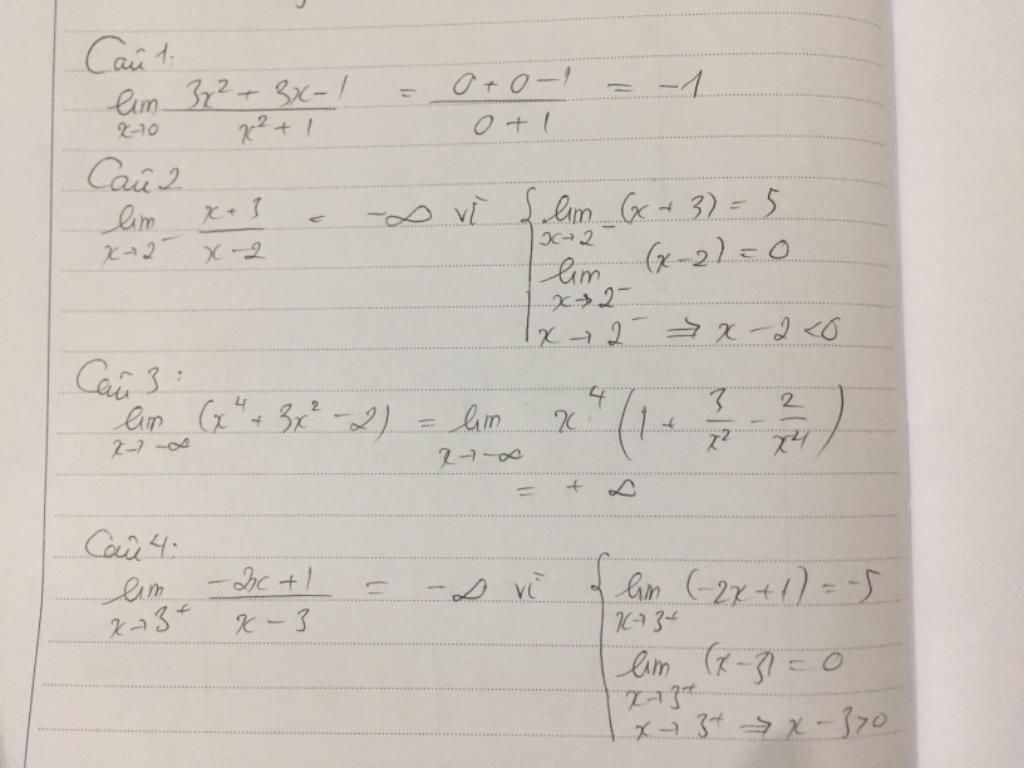 Câu 1:
lim x→0 (3x² + 3x - 1)/(x² + 1) = (0 + 0 - 1)/(0 + 1) = -1
Câu 2
lim x→2⁻ (x + 3)/(x - 2) = -∞ vì { lim x→2⁻ (x + 3) = 5
lim x→2⁻ (x - 2) = 0
x → 2⁻ ⇒ x - 2 < 0
Câu 3:
lim x→-∞ (x⁴ + 3x² - 2) = lim x→-∞ x⁴ (1 + 3/x² - 2/x⁴)
= + ∞
Câu 4:
lim x→3⁺ (-2x + 1)/(x - 3) = -∞ vì { lim x→3⁺ (-2x + 1) = -5
lim x→3⁺ (x - 3) = 0
x → 3⁺ ⇒ x - 3 > 0